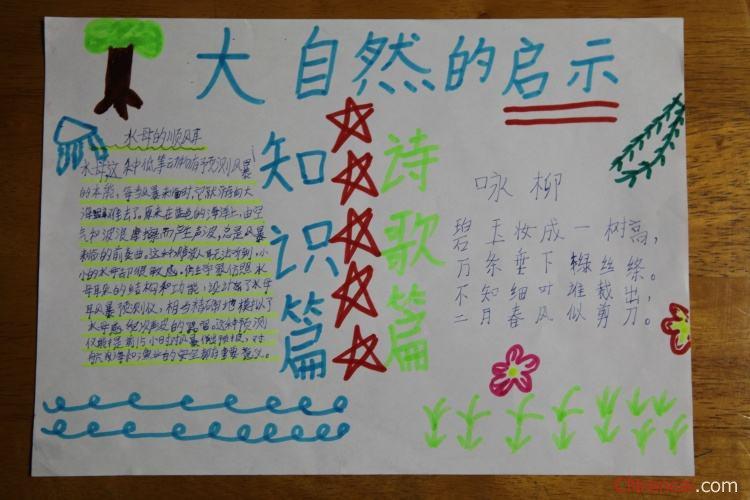 大自然的启示
水母的顺风耳
水母这种低等动物有预测风暴
的本能，每当风暴来临时，它就游向大
海避难去了。原来在蓝色的海洋上，由空
气和波浪摩擦而产生声波，总是风暴
来临的前奏曲。这种声波人耳无法听到，小
小的水母却很敏感。仿生学家仿照水
母耳朵的结构和功能，设计了水母
耳风暴预测仪，相当精确地模拟了
水母感受次声波的器官。这种预测
仪能提前15小时对风暴做出预报，对
航海和渔业的安全都有重要意义。
知识篇
诗歌篇
咏柳
碧玉妆成一树高，
万条垂下绿丝绦。
不知细叶谁裁出，
二月春风似剪刀。